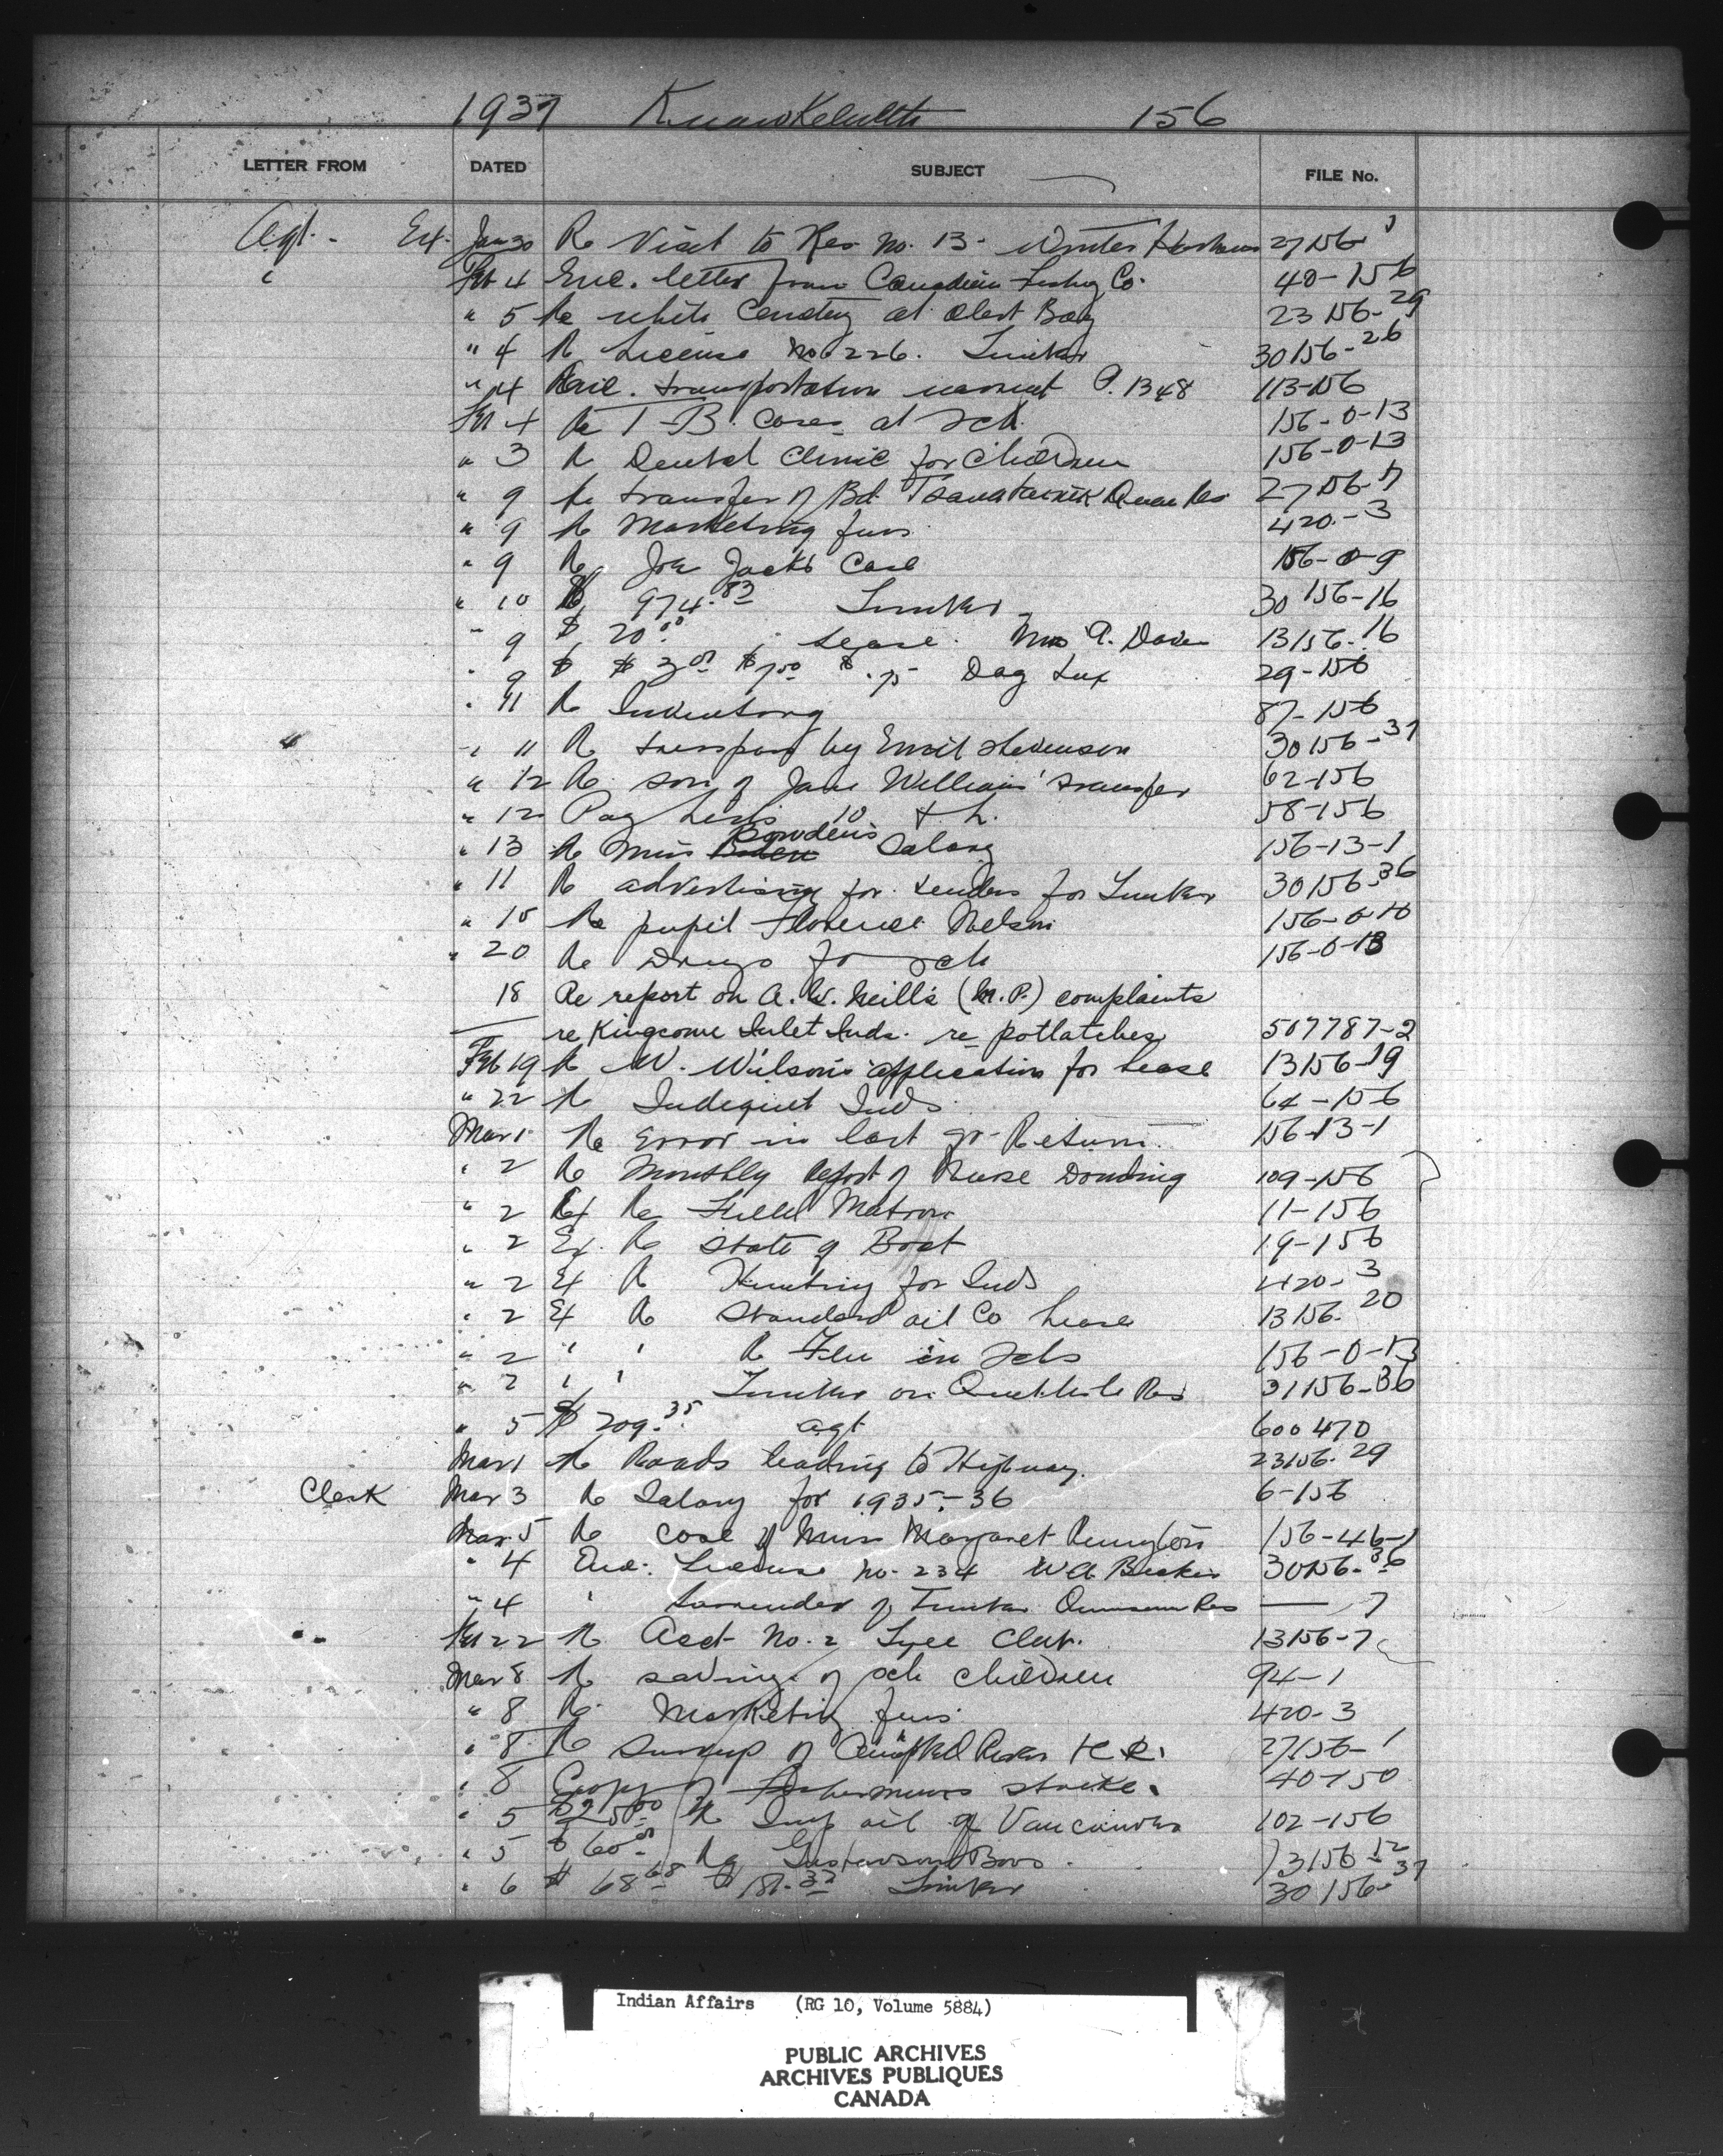 1937 Kwawkewlth 156
LETTER FROM DATED SUBJECT FILE No.
Agt. Ext. Jan 30 Re Visit to Res No. 13. Winter 27156-
" Feb 4 Enc. letter from Canadian Fishing Co. 40-156
" 5 Re white Cemetery at Alert Bay 23156-29
" 4 Re License No 226. Timber 30156-26
" 4 Enc. transportation warrant P. 1348 113-156
Feb 4 Re T-B. Cases at Sch. 156-0-13
" 3 Re Dental Clinic for Children 156-0-13
" 9 Re transfer of Bd. 27156-7
" 9 Re Marketing furs 420-3
" 9 Re Joe Jack's Case 156-0-9
" 10 $ 974.83 Timber 30156-16
" 9 $ 20.00 Lease. Mrs A. 13156-16
" 9 $ $ 3.00 $ 1.50 $ .75 Dog Tax 29-156
" 11 Re Inventory 87-156
" 11 Re trespass by Emil Stevenson 30156-37
" 12 Re son of Jane Williams' transfer 62-156
" 12 Pay Lists 10 & L. 58-156
" 13 Re Miss Bowden's Salary 156-13-1
" 11 Re advertising for tenders for Timber 30156-36
" 15 Re pupil Florence Nelson 156-0-10
" 20 Re Drugs for Sch 156-0-13
18 Re report on A. W. Neill's (M.P.) complaints
re Kingcome Inlet Inds. re potlatches 507787-2
Feb 19 Re W. Wilson's application for lease 13156-19
" 22 Re Indigent Inds. 64-156
Mar 1 Re Error in last qr-Return. 156-13-1
" 2 Re Monthly Report of Nurse 109-156
" 2 Ex Re Field Matron 11-156
" 2 Ex. Re State of Boat 19-156
" 2 Ex Re Hunting for Inds 420-3
" 2 Ex Re Standard Oil Co Lease 13156-20
" 2 " " Re Flu in Schs 156-0-13
" 2 " " Timber on Res 31156-36
" 5 $ 209.35 Agt 600470
Mar 1 Re Roads leading to Highway. 23156-29
Clerk Mar 3 Re Salary for 1935-36 6-156
Mar. 5 Re Case of Miss Margaret 156-46-1
" 4 Enc. License No. 234 W A 30156-36
" 4 " Surrender of Timber Res — 7
Feb 22 Re Acct No. 2 Tyee Club. 13156-7
Mar 8 Re savings of sch children 94-1
" 8 Re Marketing furs 420-3
" 8 Re Survey of Campbell River I.R. 27156-1
" 8 Copy of Fishermens strike. 40-150
" 5 $25.00 Re Imp Oil of Vancouver 102-156
" 5 $60.00 Re Gustavson Bros. 13156-12
" 6 $ 68.68 $ 181.32 Timber 30156-37
Indian Affairs (RG 10, Volume 5884)
PUBLIC ARCHIVES
ARCHIVES PUBLIQUES
CANADA